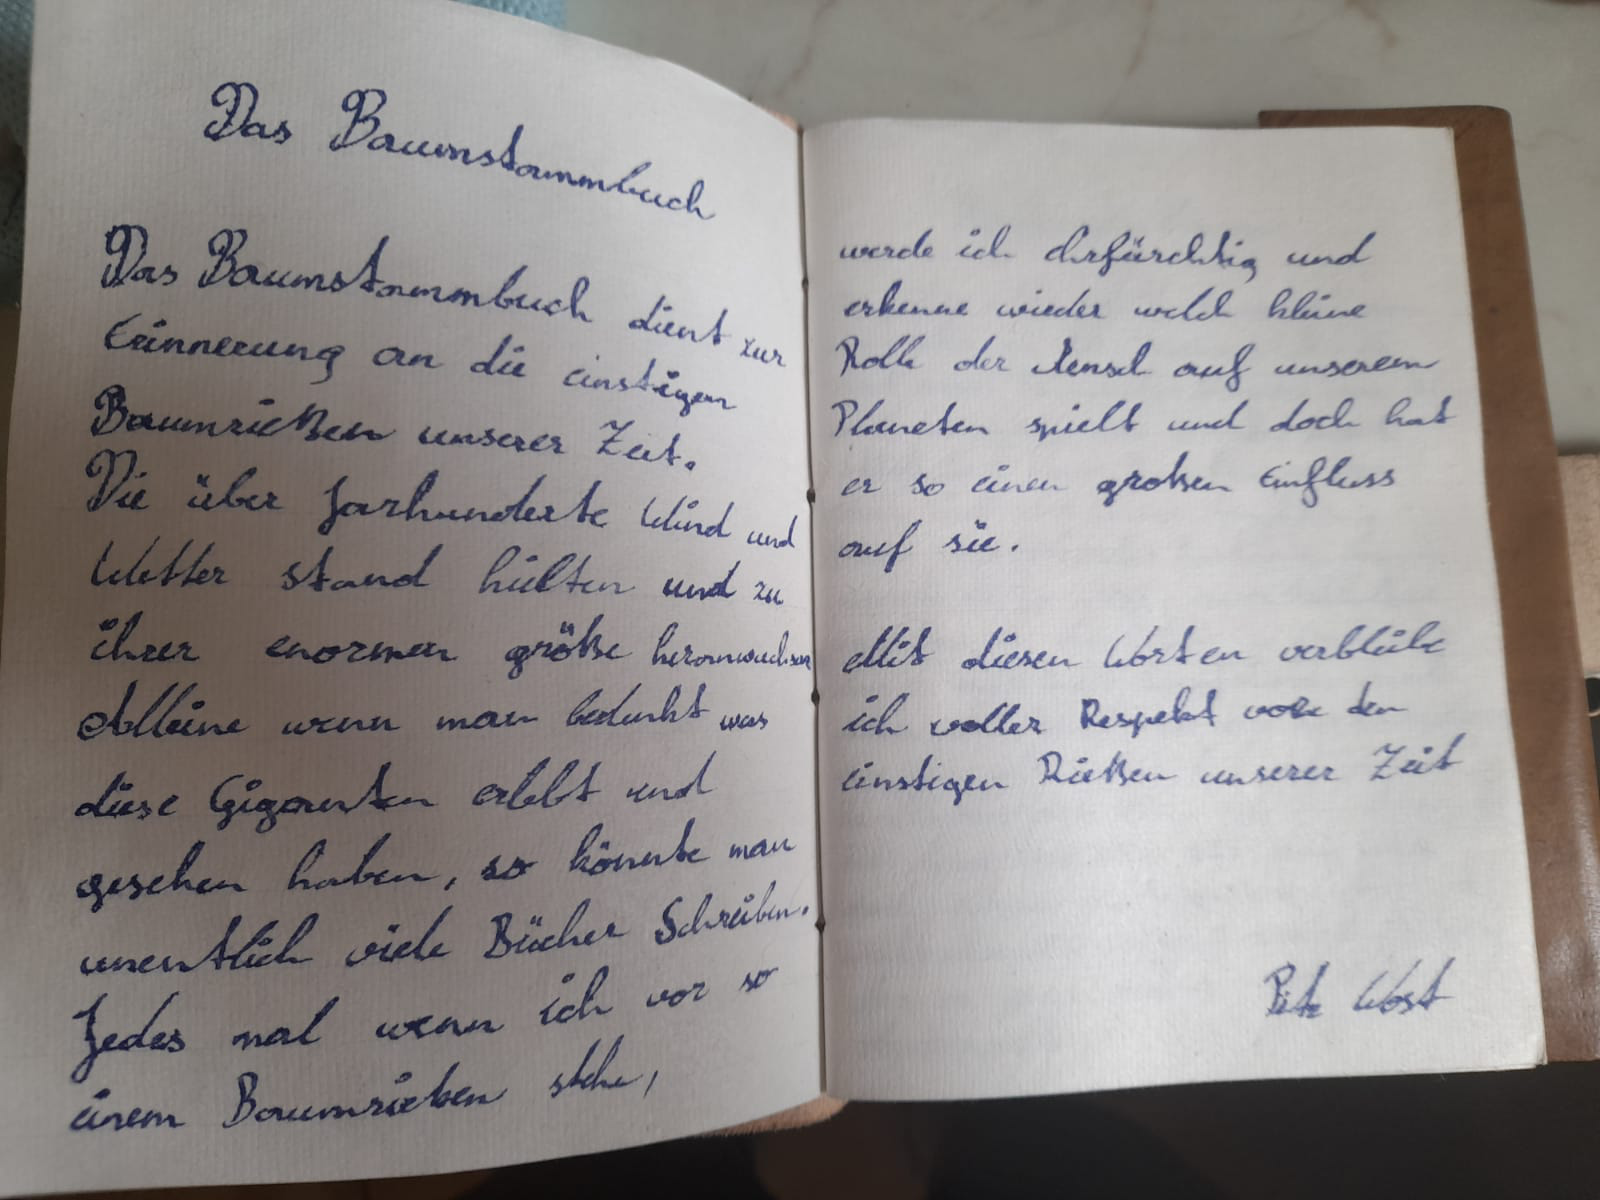 Das Baumstammbuch
Das Baumstammbuch dient zur
Erinnerung an die einstigen
Baumrießen unserer Zeit.
Die über Jarhunderte Wind und
Wetter stand hielten und zu
ihrer enormen größe heranwuchsen
Alleine wenn man bedenkt was
diese Giganten erlebt und
gesehen haben, so könnte man
unentlich viele Bücher Schreiben.
Jedes mal wenn ich vor so
einem Baumrießen stehe,
werde ich ehrfürchtig und
erkenne wieder welch kleine
Rolle der Mensch auf unserem
Planeten spielt und doch hat
er so einen großen Einfluss
auf sie.
Mit diesen Worten verbleibe
ich voller Respekt vor den
einstigen Rießen unserer Zeit
Wost